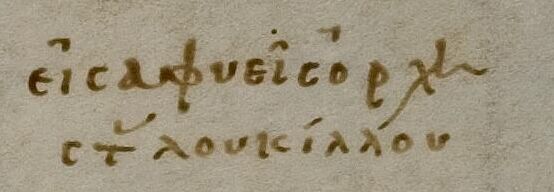 εἰς ἀφυεῖς ὀρχη
στ λουκίλλου